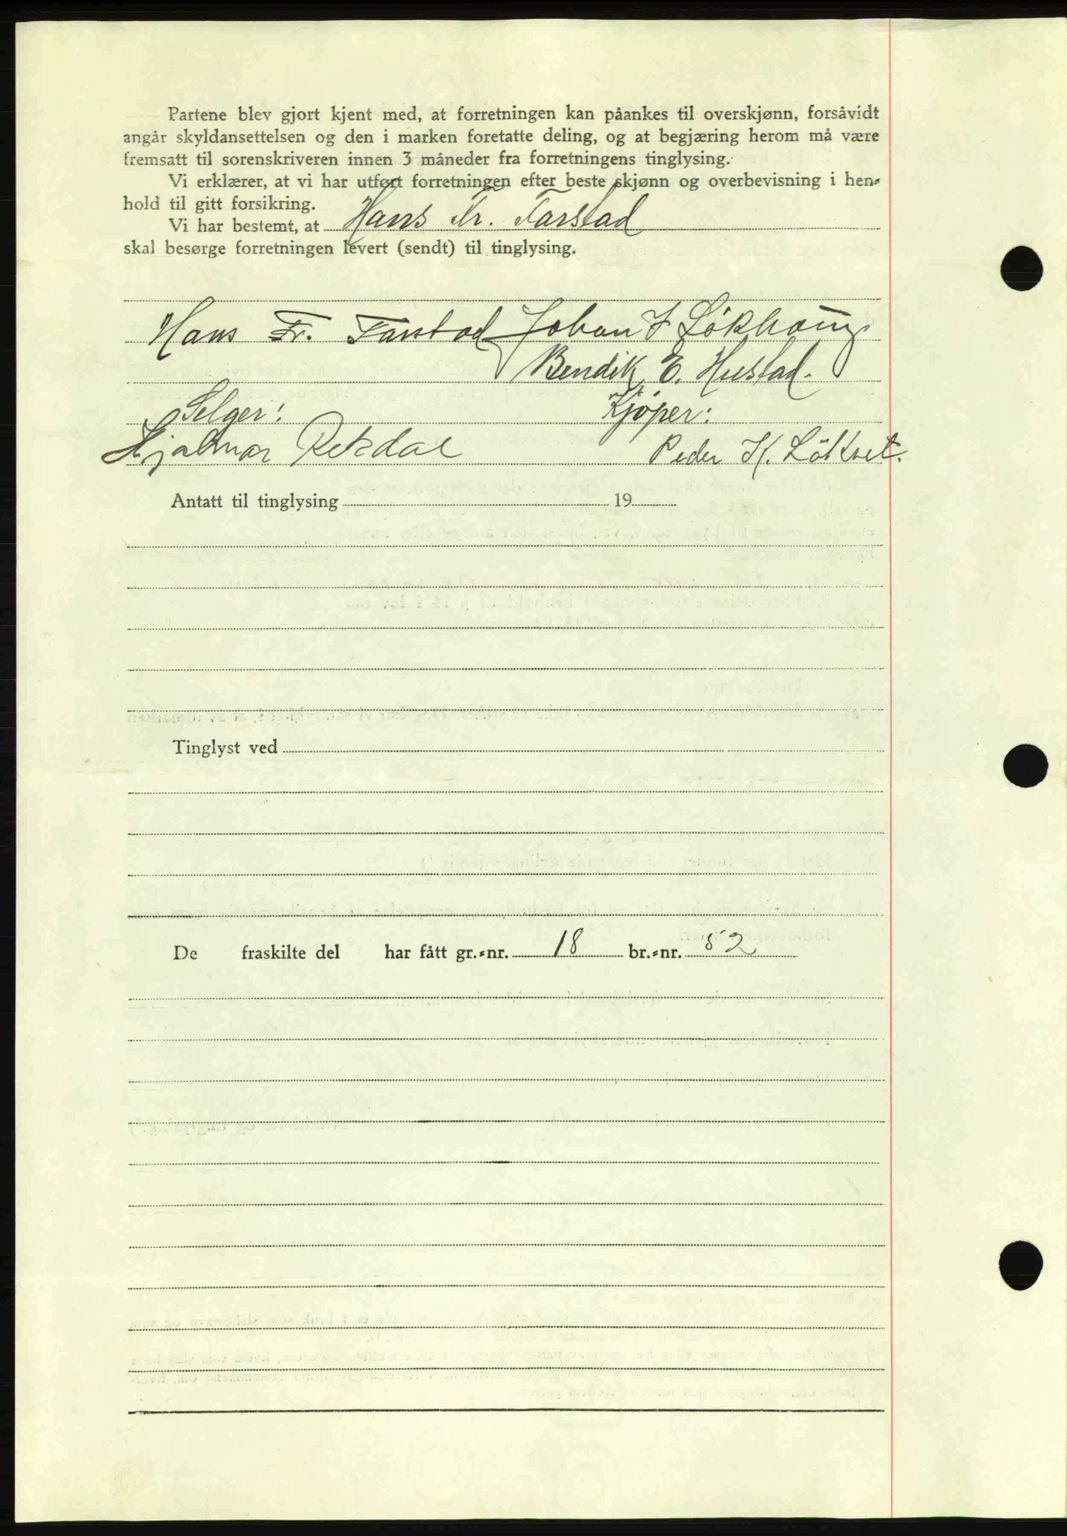 Partene blev gjort kjent med, at forretningen kan påankes til overskjønn, forsåvidt
angår skyldansettelsen og den i marken foretatte deling, og at begjæring herom må være
fremsatt til sorenskriveren innen 3 måneder fra forretningens tinglysing.
Vi erklærer, at vi har utført forretningen efter beste skjønn og overbevisning i hen-
hold til gitt forsikring.
Vi har bestemt, at Hans Fr. Farstad
skal besørge forretningen levert (sendt) til tinglysing.
Hans Fr. Farstad Johan J Løkhaug
Bendik E. Hustad.
Selger: Kjøper:
Hjalmar Rekdal Peder K. Løkset.
Antatt til tinglysing 19
Tinglyst ved
De fraskilte del har fått gr.-nr. 18 br.-nr. 52